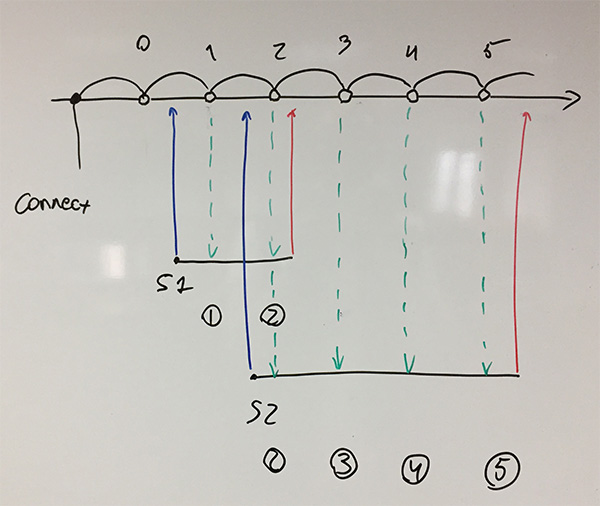 0 1 2 3 4 5
Connect
S1
① ②
S2
② ③ ④ ⑤